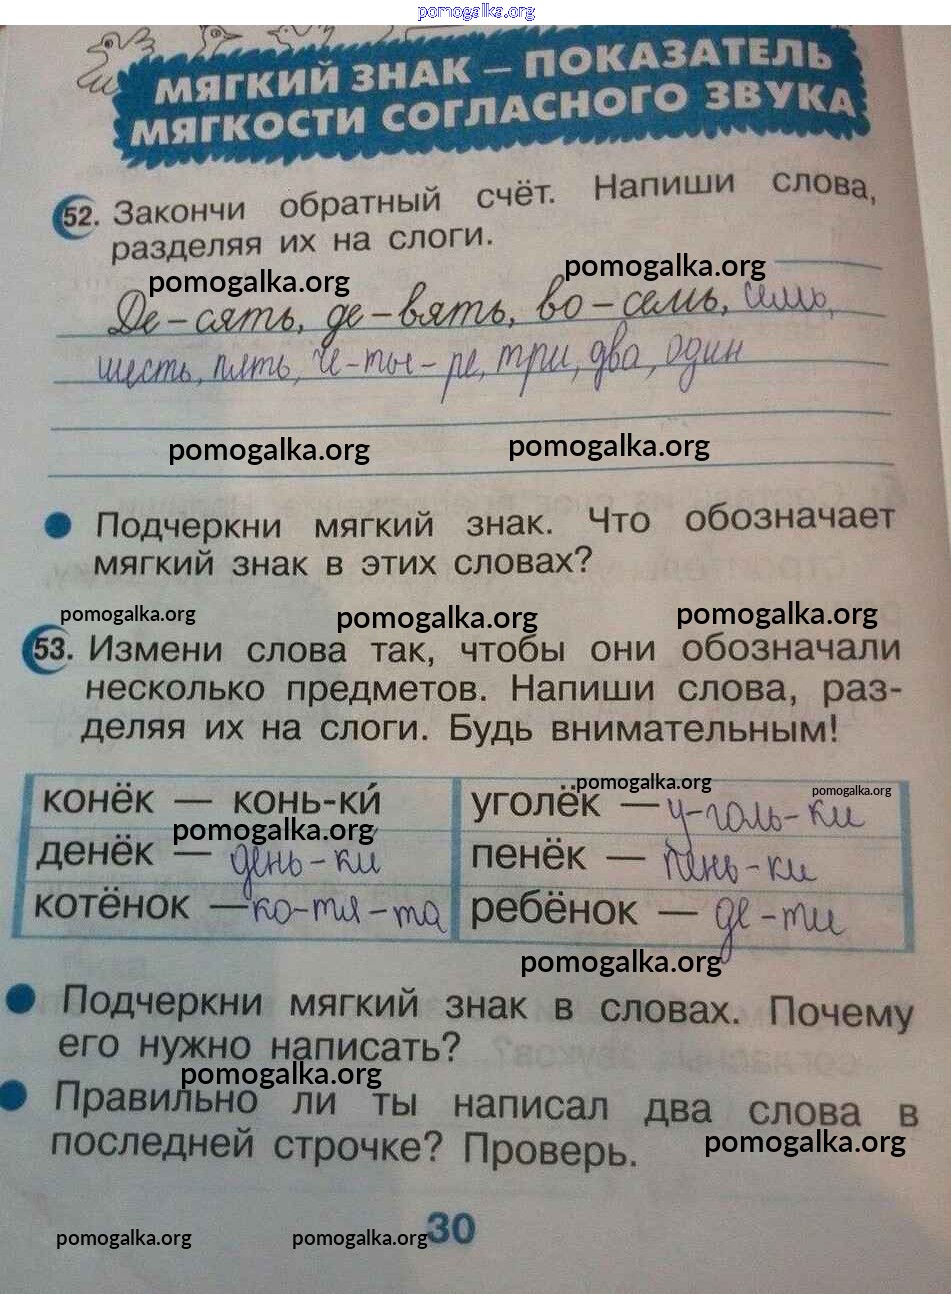 pomogalka.org
МЯГКИЙ ЗНАК – ПОКАЗАТЕЛЬ
МЯГКОСТИ СОГЛАСНОГО ЗВУКА
52. Закончи обратный счёт. Напиши слова,
разделяя их на слоги.
pomogalka.org pomogalka.org
Де-сять, де-вять, во-семь, семь,
шесть, пять, че-ты-ре, три, два, один
pomogalka.org pomogalka.org
Подчеркни мягкий знак. Что обозначает
мягкий знак в этих словах?
pomogalka.org pomogalka.org pomogalka.org
53. Измени слова так, чтобы они обозначали
несколько предметов. Напиши слова, раз-
деляя их на слоги. Будь внимательным!
pomogalka.org pomogalka.org
конёк — конь-ки́ уголёк — у-голь-ки
pomogalka.org
денёк — день-ки пенёк — пень-ки
котёнок — ко-тя-та ребёнок — де-ти
pomogalka.org
Подчеркни мягкий знак в словах. Почему
его нужно написать?
pomogalka.org
Правильно ли ты написал два слова в
последней строчке? Проверь.
pomogalka.org
pomogalka.org pomogalka.org 30